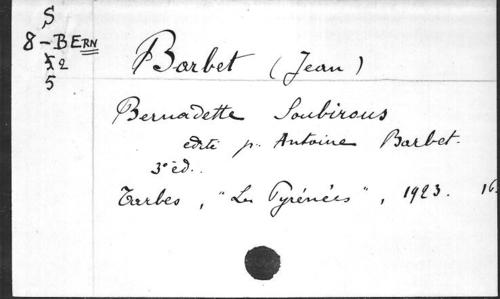 S
8-BERN
52
5
Barbet (Jean)
Bernadette Soubirous
edité p. Antoine Barbet.
3e éd..
Tarbes, "Les Pyrénées", 1923. 16